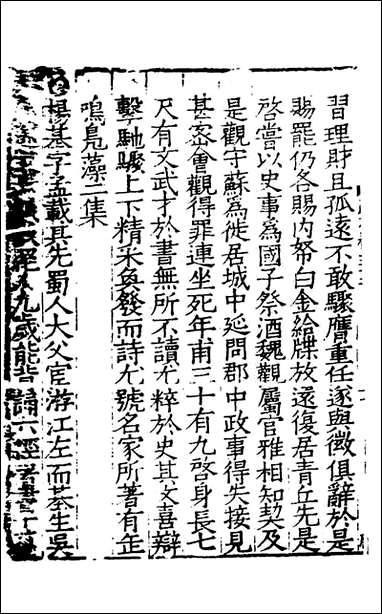 習理財且孤遠不敢驟膺重任遂與徽俱辭於是
賜罷仍各賜内帑白金給牒放還復居青丘先是
啓嘗以史事為國子祭酒魏觀屬官雅相知契及
是觀守蘇為徙居城中延問郡中政事得失接見
甚宻會觀得罪連坐死年甫三十有九啓身長七
尺有文武才於書無所不讀尤粹於史其文喜辯
擊馳騁上下精采煥發而詩尤號名家所著有缶
鳴鳧藻二集
楊基字孟載其先蜀人大父宦游江左而基生吳
九歲能背誦六經